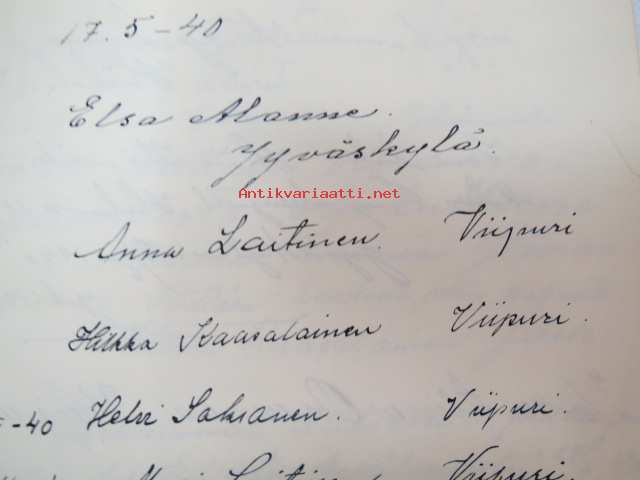 17.5-40
Elsa Alanne.
Jyväskylä.
Antikvariaatti.net
Anna Laitinen. Viipuri
Hilkka Kaasalainen Viipuri.
-40 Helvi Saksanen. Viipuri.
Viipuri.